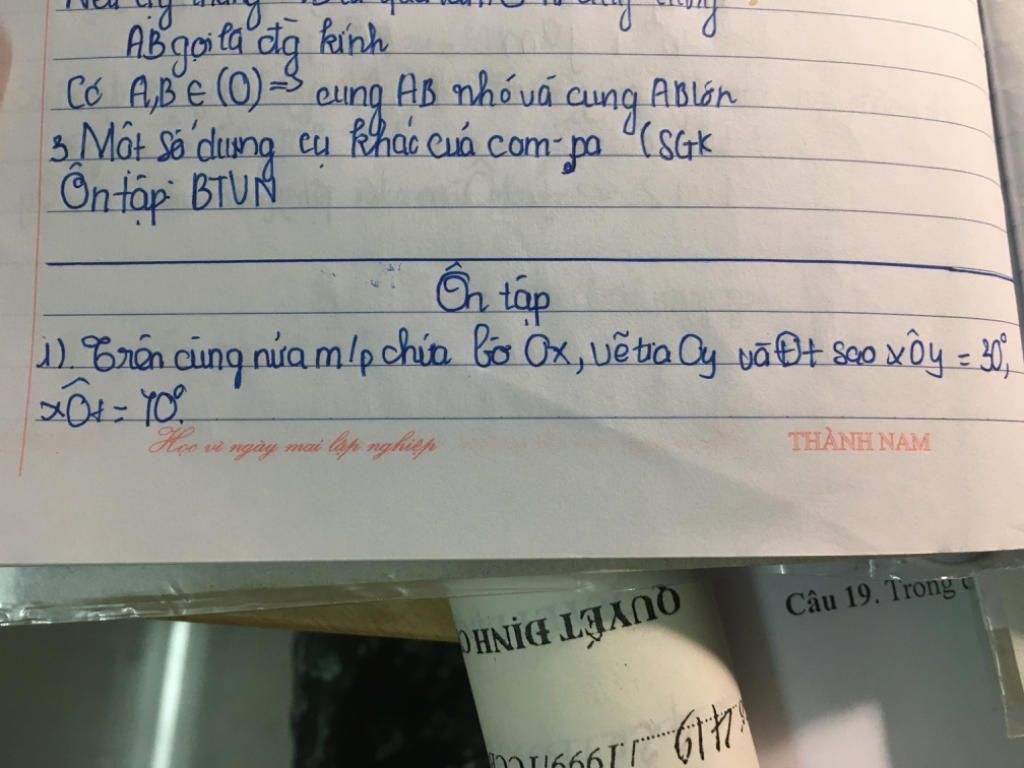 AB gọi là đg kính
Có A,B ∈ (O) => cung AB nhỏ và cung AB lớn
3, Một số dụng cụ khác của com-pa (SGK
Ôn tập: BTVN
Ôn tập
1). Trên cùng nửa m/p chứa bờ Ox, vẽ tia Oy và Ot sao xÔy = 30°,
xÔt = 70°.
Học vì ngày mai lập nghiệp
THÀNH NAM
Câu 19. Trong
QUYẾT ĐỊNH
4419